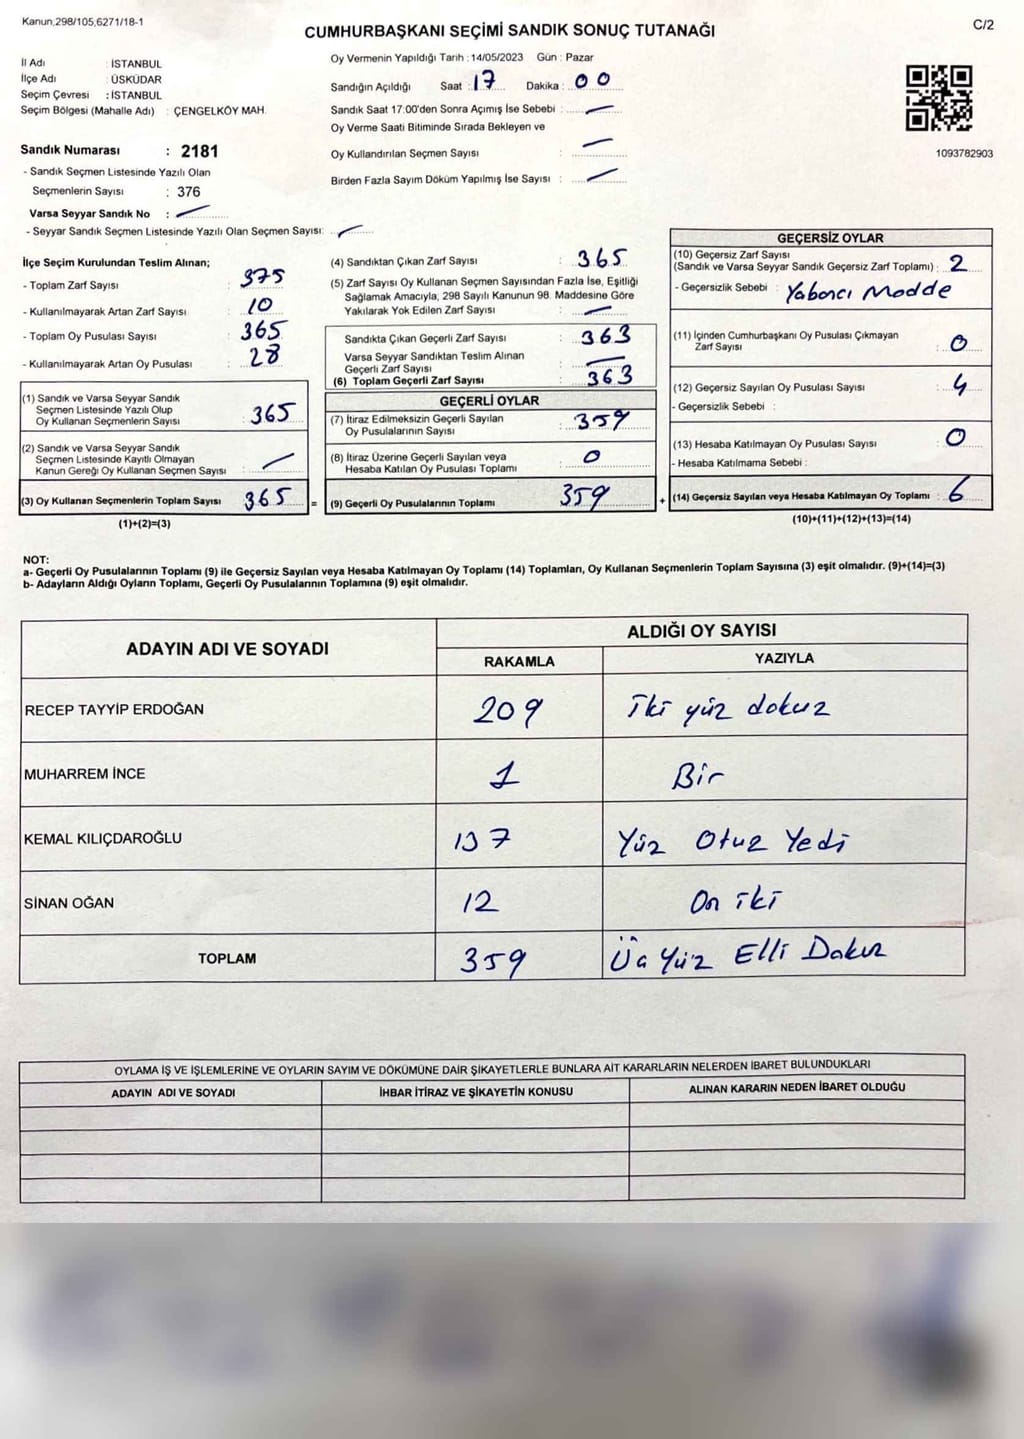 Kanun,298/105,6271/18-1
CUMHURBAŞKANI SEÇİMİ SANDIK SONUÇ TUTANAĞI
C/2
İl Adı : İSTANBUL
İlçe Adı : ÜSKÜDAR
Seçim Çevresi : İSTANBUL
Seçim Bölgesi (Mahalle Adı) : ÇENGELKÖY MAH.
Sandık Numarası : 2181
- Sandık Seçmen Listesinde Yazılı Olan
Seçmenlerin Sayısı : 376
Varsa Seyyar Sandık No :
- Seyyar Sandık Seçmen Listesinde Yazılı Olan Seçmen Sayısı:
Oy Vermenin Yapıldığı Tarih : 14/05/2023 Gün : Pazar
Sandığın Açıldığı Saat : 17 Dakika : 00
Sandık Saat 17:00'den Sonra Açımış İse Sebebi :
Oy Verme Saati Bitiminde Sırada Bekleyen ve
Oy Kullandırılan Seçmen Sayısı :
Birden Fazla Sayım Döküm Yapılmış İse Sayısı :
1093782903
İlçe Seçim Kurulundan Teslim Alınan;
- Toplam Zarf Sayısı : 375
- Kullanılmayarak Artan Zarf Sayısı : 10
- Toplam Oy Pusulası Sayısı : 365
- Kullanılmayarak Artan Oy Pusulası : 28
(1) Sandık ve Varsa Seyyar Sandık
Seçmen Listesinde Yazılı Olup
Oy Kullanan Seçmenlerin Sayısı : 365
(2) Sandık ve Varsa Seyyar Sandık
Seçmen Listesinde Kayıtlı Olmayan
Kanun Gereği Oy Kullanan Seçmen Sayısı :
(3) Oy Kullanan Seçmenlerin Toplam Sayısı : 365 =
(1)+(2)=(3)
(4) Sandıktan Çıkan Zarf Sayısı : 365
(5) Zarf Sayısı Oy Kullanan Seçmen Sayısından Fazla İse, Eşitliği
Sağlamak Amacıyla, 298 Sayılı Kanunun 98. Maddesine Göre
Yakılarak Yok Edilen Zarf Sayısı :
Sandıkta Çıkan Geçerli Zarf Sayısı : 363
Varsa Seyyar Sandıktan Teslim Alınan
Geçerli Zarf Sayısı :
(6) Toplam Geçerli Zarf Sayısı : 363
GEÇERLİ OYLAR
(7) İtiraz Edilmeksizin Geçerli Sayılan
Oy Pusulalarının Sayısı : 359
(8) İtiraz Üzerine Geçerli Sayılan veya
Hesaba Katılan Oy Pusulası Toplamı : 0
(9) Geçerli Oy Pusulalarının Toplamı 359 +
GEÇERSİZ OYLAR
(10) Geçersiz Zarf Sayısı
(Sandık ve Varsa Seyyar Sandık Geçersiz Zarf Toplamı) : 2
- Geçersizlik Sebebi : Yabancı Madde
(11) İçinden Cumhurbaşkanı Oy Pusulası Çıkmayan
Zarf Sayısı : 0
(12) Geçersiz Sayılan Oy Pusulası Sayısı : 4
- Geçersizlik Sebebi :
(13) Hesaba Katılmayan Oy Pusulası Sayısı : 0
- Hesaba Katılmama Sebebi :
(14) Geçersiz Sayılan veya Hesaba Katılmayan Oy Toplamı : 6
(10)+(11)+(12)+(13)=(14)
NOT:
a- Geçerli Oy Pusulalarının Toplamı (9) ile Geçersiz Sayılan veya Hesaba Katılmayan Oy Toplamı (14) Toplamları, Oy Kullanan Seçmenlerin Toplam Sayısına (3) eşit olmalıdır. (9)+(14)=(3)
b- Adayların Aldığı Oyların Toplamı, Geçerli Oy Pusulalarının Toplamına (9) eşit olmalıdır.
ADAYIN ADI VE SOYADI
ALDIĞI OY SAYISI
RAKAMLA YAZIYLA
RECEP TAYYİP ERDOĞAN 209 İki yüz dokuz
MUHARREM İNCE 1 Bir
KEMAL KILIÇDAROĞLU 137 Yüz Otuz Yedi
SİNAN OĞAN 12 On iki
TOPLAM 359 Üç Yüz Elli Dokuz
OYLAMA İŞ VE İŞLEMLERİNE VE OYLARIN SAYIM VE DÖKÜMÜNE DAİR ŞİKAYETLERLE BUNLARA AİT KARARLARIN NELERDEN İBARET BULUNDUKLARI
ADAYIN ADI VE SOYADI İHBAR İTİRAZ VE ŞİKAYETİN KONUSU ALINAN KARARIN NEDEN İBARET OLDUĞU